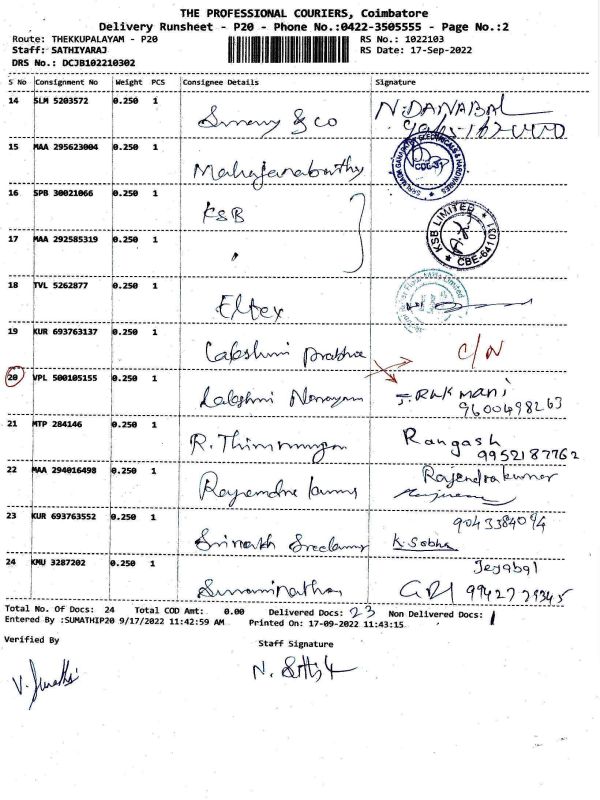 THE PROFESSIONAL COURIERS, Coimbatore
Delivery Runsheet - P20 - Phone No.:0422-3505555 - Page No.:2
Route: THEKKUPALAYAM - P20 RS No.: 1022103
Staff: SATHIYARAJ RS Date: 17-Sep-2022
DRS No.: DCJB102210302
S No Consignment No Weight PCS Consignee Details Signature
14 SLM 5203572 0.250 1 & co N.DANABAL
15 MAA 295623004 0.250 1
16 SPB 30021066 0.250 1 KSB KSB LIMITED ★ CBE-641031 ★
17 MAA 292585319 0.250 1
18 TVL 5262877 0.250 1 Eltex
19 KUR 693763137 0.250 1 Lakshmi Prabha C/N
20 VPL 500105155 0.250 1 Lakshmi Narayan mani
9600498263
21 MTP 284146 0.250 1 Rangash
9952187762
22 MAA 294016498 0.250 1 Rajendrakumar
23 KUR 693763552 0.250 1 K. Sobha
24 KMU 3287202 0.250 1 Jeyabal
9942729345
Total No. Of Docs: 24 Total COD Amt: 0.00 Delivered Docs: 23 Non Delivered Docs: 1
Entered By :SUMATHIP20 9/17/2022 11:42:59 AM Printed On: 17-09-2022 11:43:15
Verified By Staff Signature